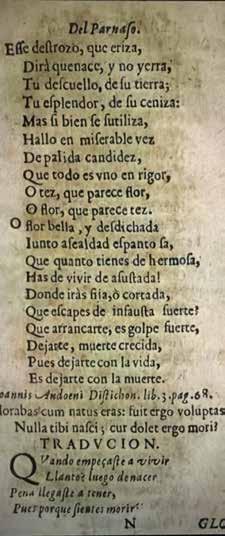 Del Parnaso.
Esse destrozo, que eriza,
Dirà quenace, y no yerra,
Tu descuello, de su tierra;
Tu esplendor, de su ceniza:
Mas si bien se sutiliza,
Hallo en miserable vez
De palida candidez,
Que todo es vno en rigor,
O tez, que parece flor,
O flor, que parece tez.
O flor bella, y desdichada
Iunto afealdad espanto sa,
Que quanto tienes de hermosa,
Has de vivir de asustada!
Donde iràs fija, ò cortada,
Que escapes de infausta suerte?
Que arrancarte, es golpe fuerte,
Dejarte, muerte crecida,
Pues dejarte con la vida,
Es dejarte con la muerte.
oannis Andoeni Distichon. lib. 3. pag. 68.
lorabas cum natus eras: fuit ergo voluptas
Nulla tibi nasci; cur dolet ergo mori?
TRADVCION.
QVando empeçaste a vivir
Llantos luego de nacer
Pena llegaste a tener,
Pues porque sientes morir
N GLO